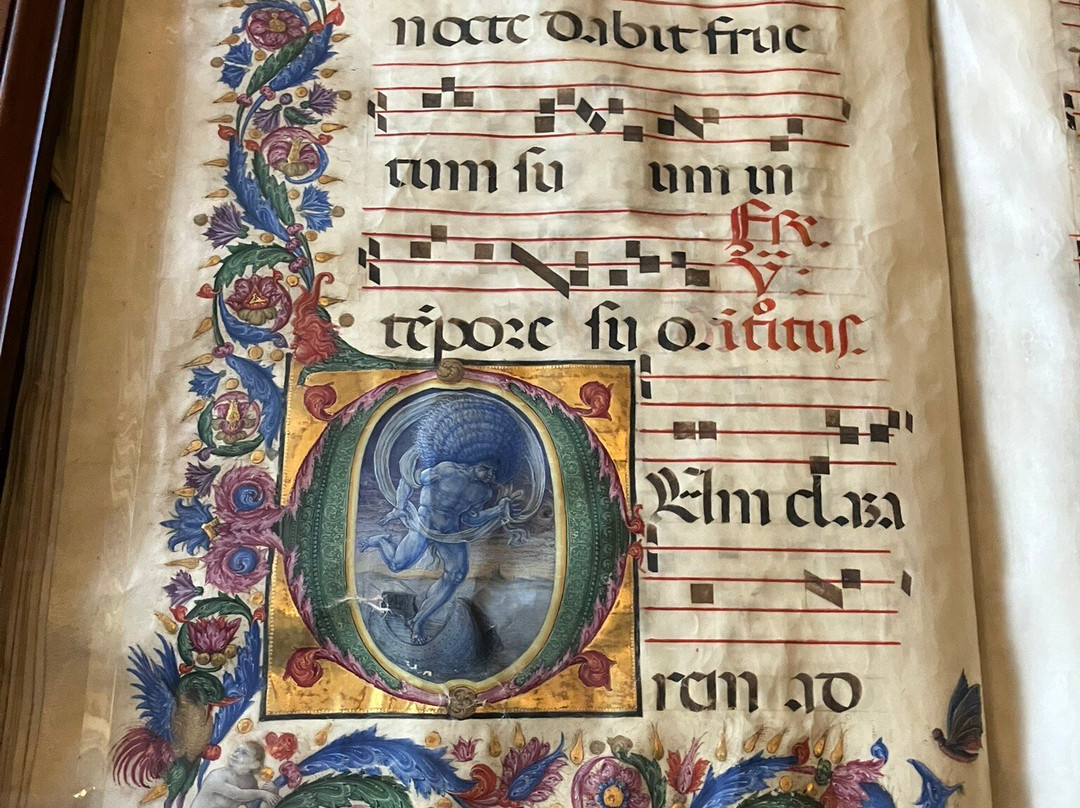 nocte dabit fruc
tum su um in
Fr.
V:
tempore su o. itroitus.
OEm clara
rem ad